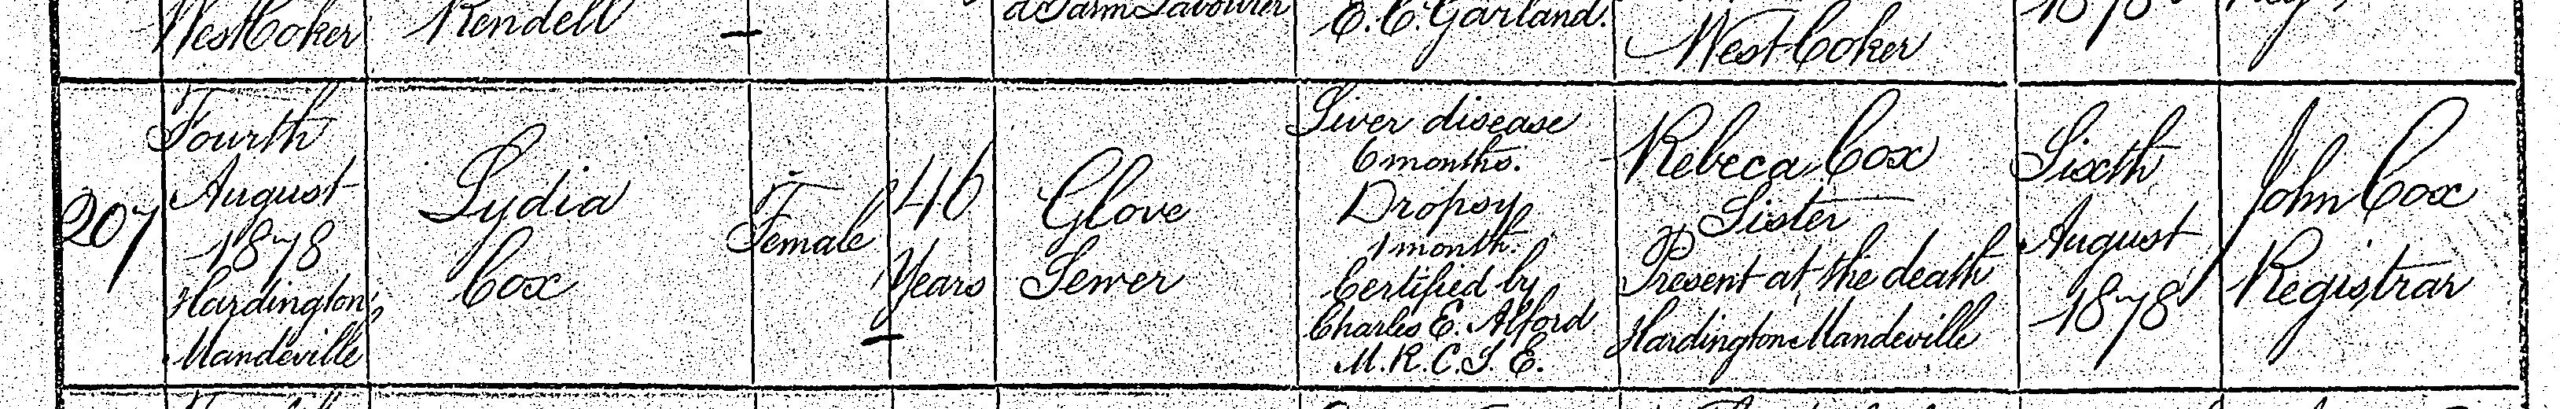 West Coker
Rendell
a Farm Labourer
E. C. Garland.
West Coker
1878
207
Fourth
August
1878
Hardington
Mandeville
Lydia
Cox
Female
46
Years
Glove
Sewer
Liver disease
6 months.
Dropsy
1 month.
Certified by
Charles E. Alford
M.R.C.S.E.
Rebeca Cox
Sister
Present at the death
Hardington Mandeville
Sixth
August
1878
John Cox
Registrar